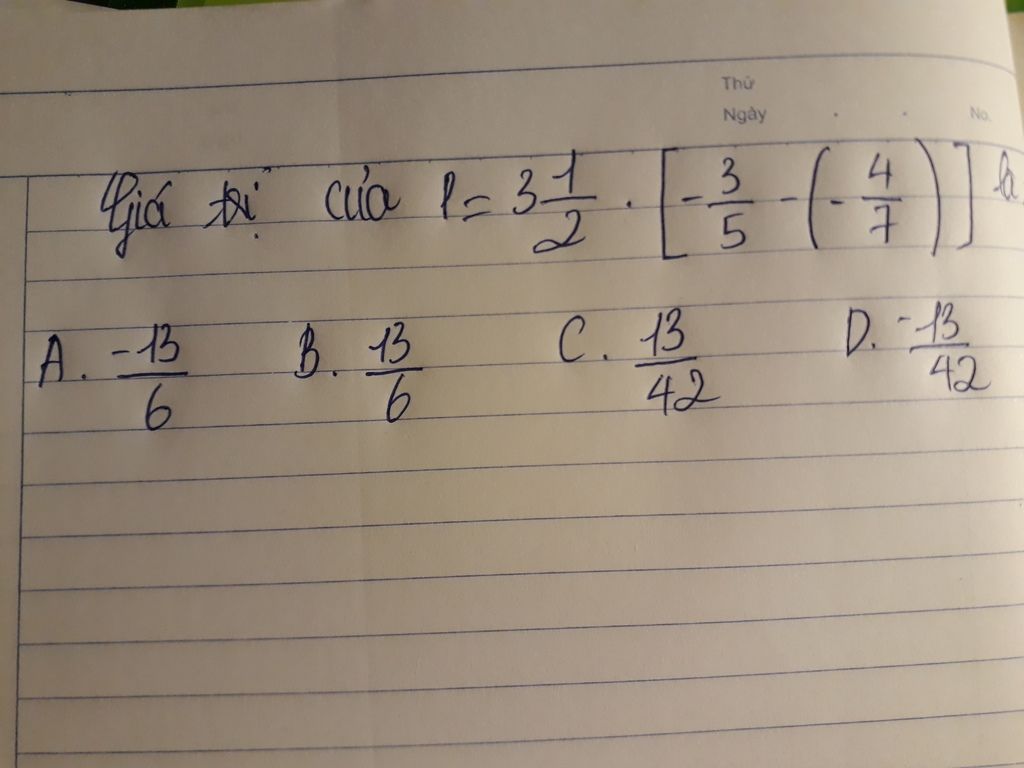 Thứ
Ngày . . No.
Giá trị của P = 3 1/2 . [- 3/5 - (- 4/7)] là
A. -13/6 B. 13/6 C. 13/42 D. -13/42